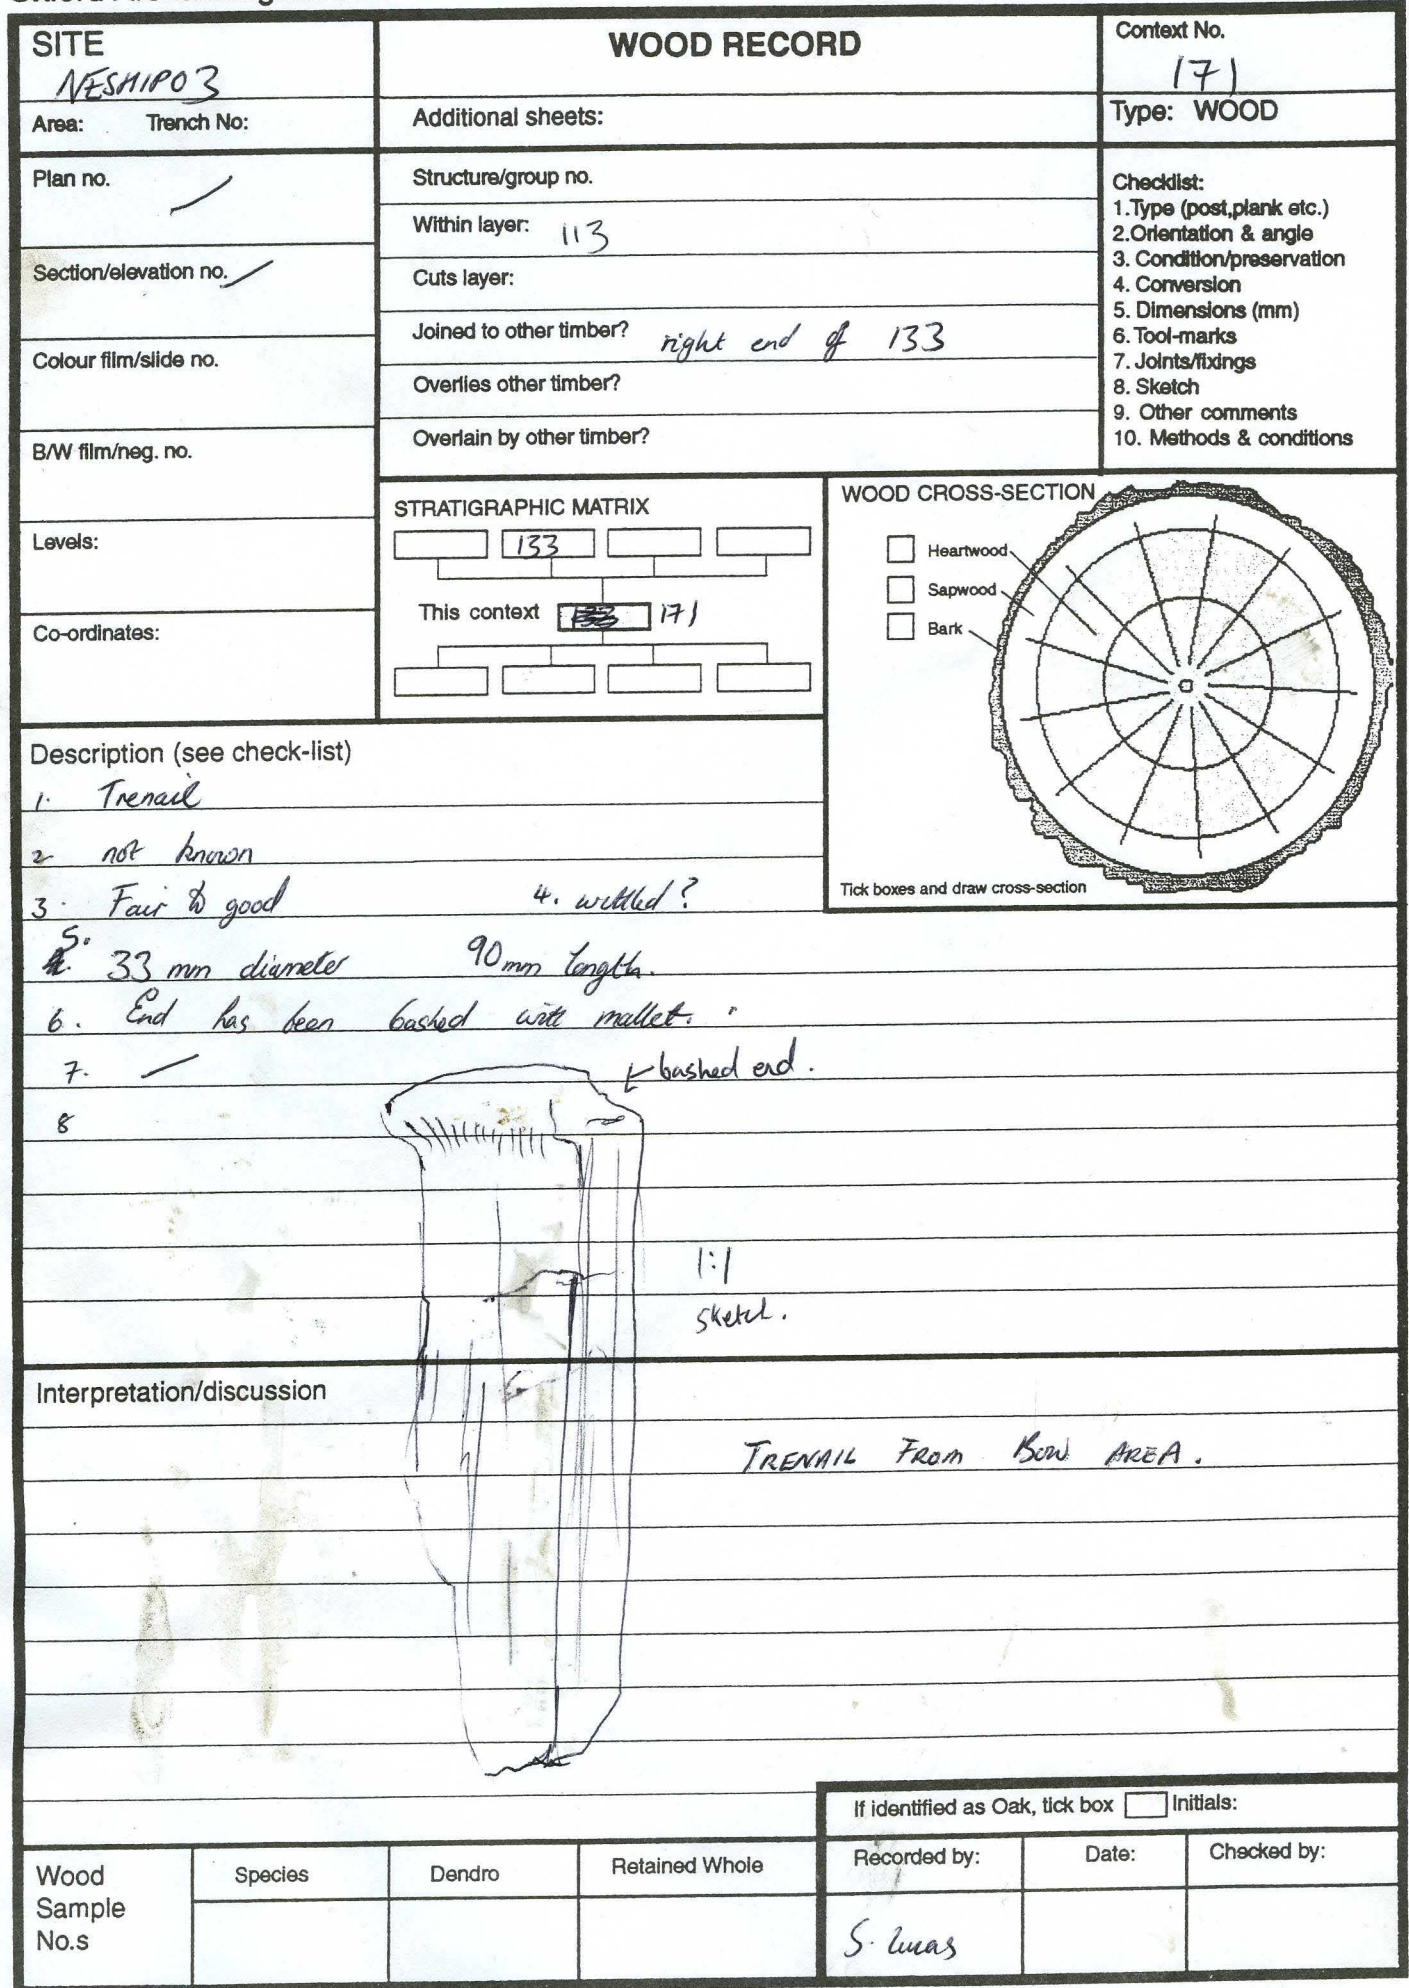 SITE
NESHIP03
WOOD RECORD
Context No.
171
Area: Trench No:
Additional sheets:
Type: WOOD
Plan no. /
Structure/group no.
Within layer: 113
Section/elevation no. /
Cuts layer:
Joined to other timber? right end of 133
Colour film/slide no.
Overlies other timber?
Overlain by other timber?
B/W film/neg. no.
Checklist:
1.Type (post,plank etc.)
2.Orientation & angle
3. Condition/preservation
4. Conversion
5. Dimensions (mm)
6. Tool-marks
7. Joints/fixings
8. Sketch
9. Other comments
10. Methods & conditions
Levels:
Co-ordinates:
STRATIGRAPHIC MATRIX
133
This context 171
WOOD CROSS-SECTION
Heartwood
Sapwood
Bark
Tick boxes and draw cross-section
Description (see check-list)
1. Trenail
2 not known
3. Fair to good 4. wittled?
5. 33 mm diameter 90mm length.
6. End has been bashed with mallet.
7. —
bashed end.
8
1:1
sketch.
Interpretation/discussion
TRENAIL FROM BOW AREA.
If identified as Oak, tick box Initials:
Wood Sample No.s
Species
Dendro
Retained Whole
Recorded by:
Date:
Checked by:
S. Lucas